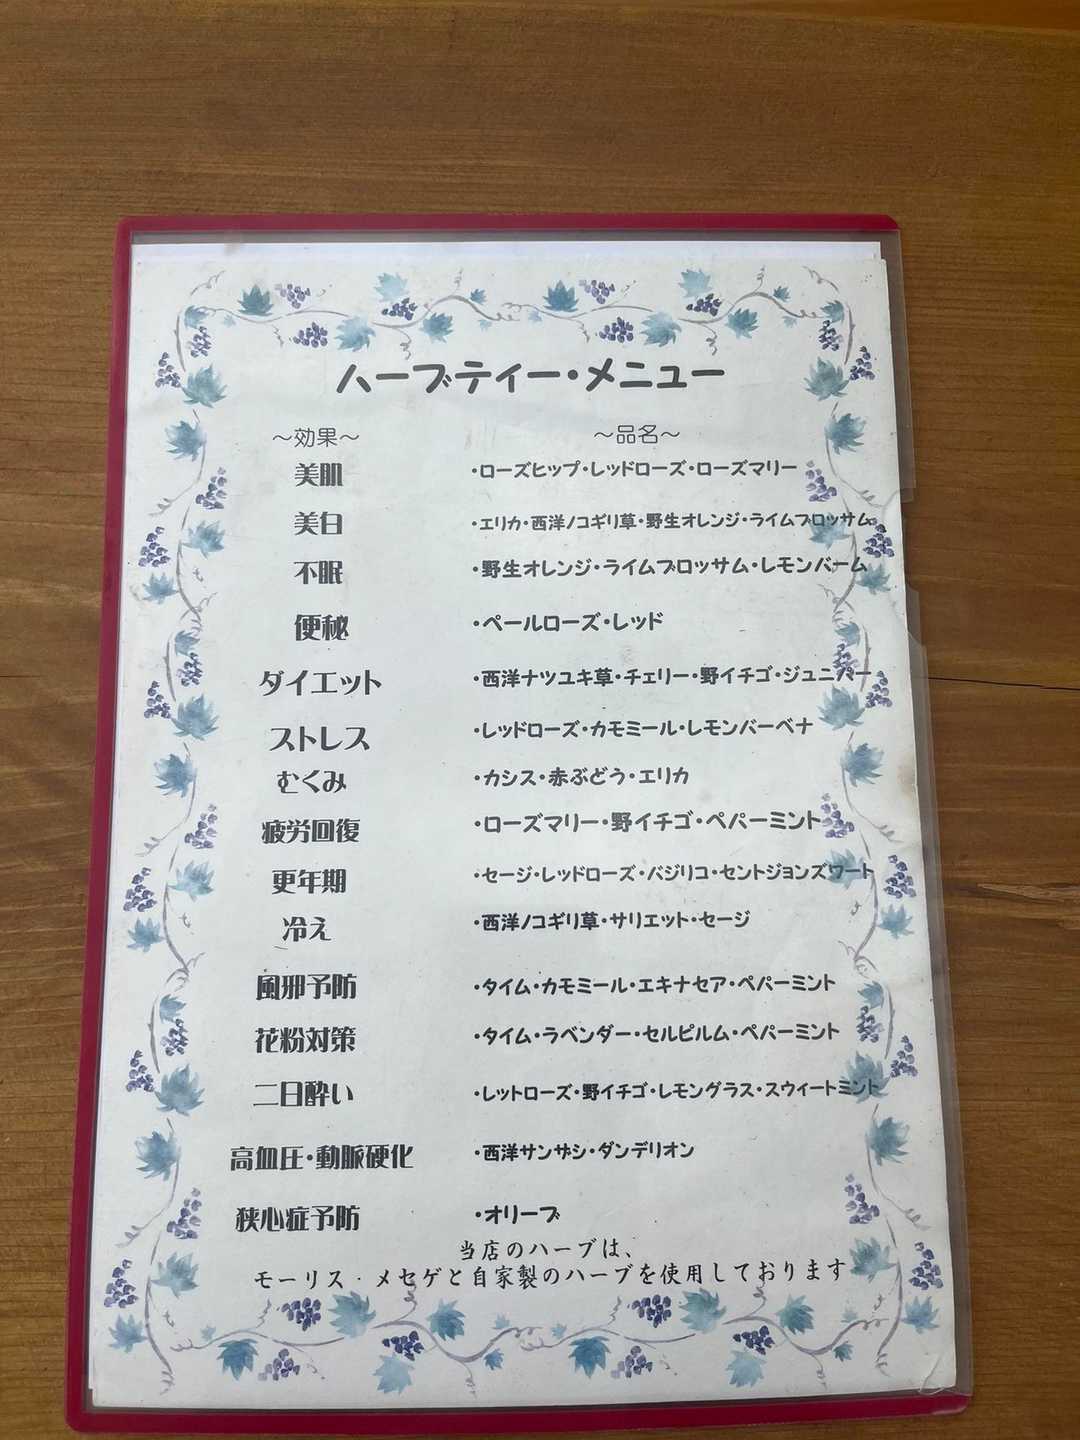 ハーブティー・メニュー
～効果～ ～品名～
美肌 ・ローズヒップ・レッドローズ・ローズマリー
美白 ・エリカ・西洋ノコギリ草・野生オレンジ・ライムブロッサム
不眠 ・野生オレンジ・ライムブロッサム・レモンバーム
便秘 ・ペールローズ・レッド
ダイエット ・西洋ナツユキ草・チェリー・野イチゴ・ジュニパー
ストレス ・レッドローズ・カモミール・レモンバーベナ
むくみ ・カシス・赤ぶどう・エリカ
疲労回復 ・ローズマリー・野イチゴ・ペパーミント
更年期 ・セージ・レッドローズ・バジリコ・セントジョンズワート
冷え ・西洋ノコギリ草・サリエット・セージ
風邪予防 ・タイム・カモミール・エキナセア・ペパーミント
花粉対策 ・タイム・ラベンダー・セルピルム・ペパーミント
二日酔い ・レットローズ・野イチゴ・レモングラス・スウィートミント
高血圧・動脈硬化 ・西洋サンザシ・ダンデリオン
狭心症予防 ・オリーブ
当店のハーブは、
モーリス・メセゲと自家製のハーブを使用しております